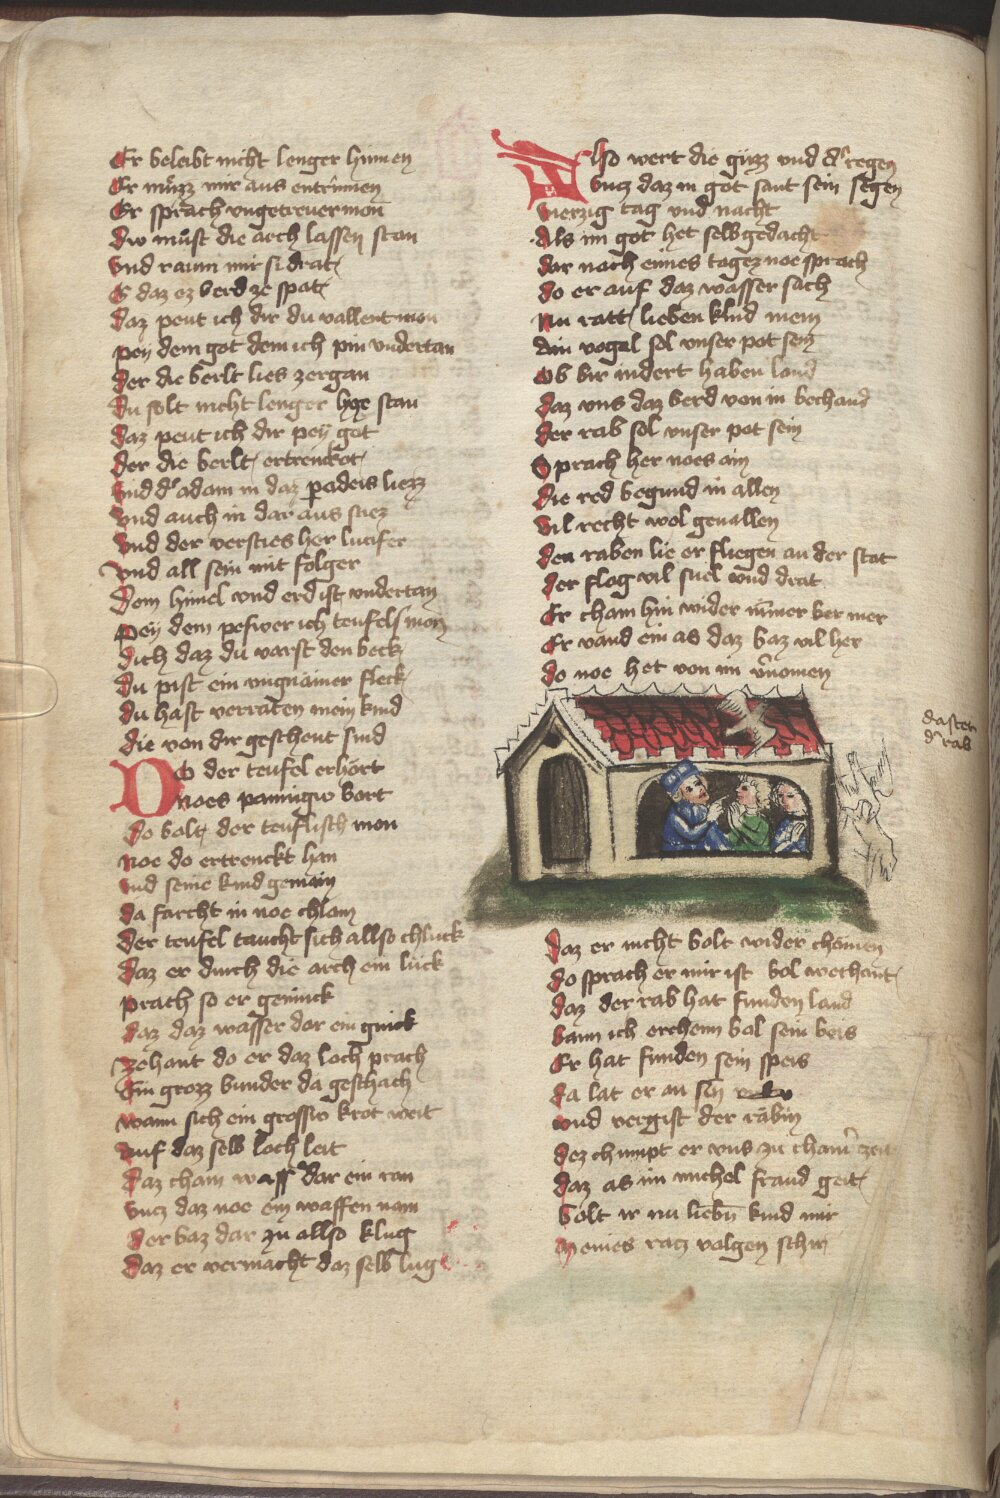 Er beleibt nicht lenger hinnen
Er müzz mir aus entrinnen
Er sprach vngetrewer mon
Dw müst die arch lassen stan
Vnd raum mir si drat
E daz ez berd ze spat
Daz peut ich dir du vallent mon
pey dem got dem ich pin vndertan
Der die berlt lies zergan
Du solt nicht lenger hye stan
Daz peut ich dir pey got
Der die berlt ertrenckot
Vnd d' adam in daz padeis liezz
Vnd auch in dar aus stiez
Vnd der versties her lucifer
Vnd all sein mit folger
Dem himel vnd erd ist vndertan
Pey dem peswer ich teufels mon
Dich daz du varst den beck
Du pist ein vngnämer fleck
Du hast verraten mein kind
Die von dir geschent sind
Do der teufel erhört
noes pannigw bort
Do bolt der teuflisch mon
Noe do ertrenckt han
Vnd seine kind gemain
Da farcht in noe chlain
Der teufel taucht sich allso chluck
Daz er durch die arch ein lück
Prach so er genuick
Daz daz wasser dar ein quick
Zehant do er daz loch prach
Ein grozz bunder da geschach
Wann sich ein grossw krot weit
Auf daz selb loch leit
Daz cham wass' dar ein ran
Vncz daz noe ein waffen nam
Der baz dar zu allso klug
Daz er vermacht daz selb lug
Also wert die güzz vnd d' regen
Vncz daz in got sant sein segen
Vierzig tag vnd nacht
Als im got het selb gedacht
Dar nach eines tagez noe sprach
Do er auf daz wasser sach
Nu ratt lieben kind mein
Ain vogal sol vnser pot sein
Ob bir indert haben land
Daz vns daz berd von in bechand
Der rab sol vnser pot sein
Sprach her noes ain
Die red begund in allen
Vil recht wol geuallen
Den raben lie er fliegen an der stat
Der flog vil snel vnd drat
Er cham hin wider nimer ber mer
Er vand ein as daz baz vil her
Do noe het von im v'nomen
dasten
d' rab
Daz er nicht bolt wider chömen
Do sprach er mir ist bol wechant
Daz der rab hat funden land
Bann ich erchenn bol sein beis
Er hat funden sein speis
Da lat er an sein
Vnd vergist der räbin
Dez chumpt er vns zu cham' zeit
Daz as im michel fraud geit
Bolt ir nu lieb'n kind mir
Meines ratz volgen schir